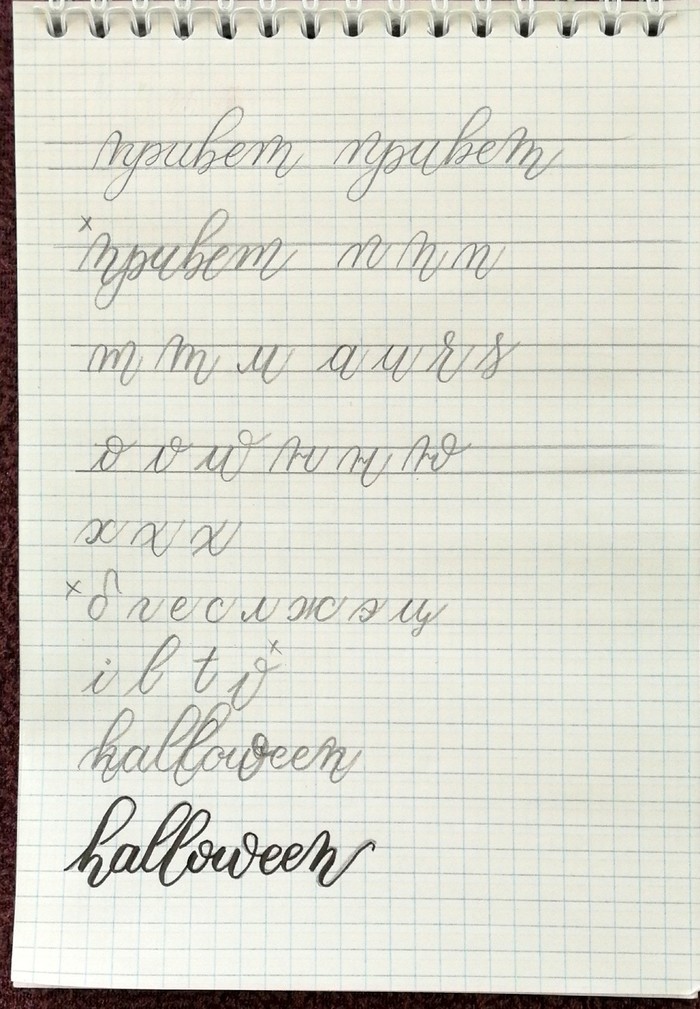 привет привет
х привет п п п
т т и а и я я
о о ю н н ю
х х х
х б г е с л ж э щ
i l t v x
halloween
halloween